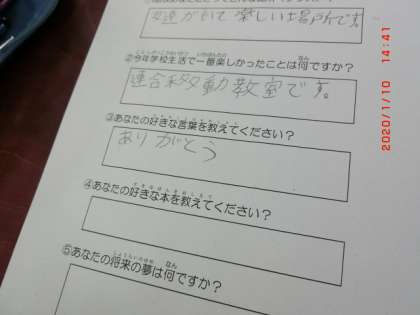 友達がいて楽しい場所です。
②今年学校生活で一番楽しかったことは何ですか？
連合移動教室です。
③あなたの好きな言葉を教えてください？
ありがとう
④あなたの好きな本を教えてください？
⑤あなたの将来の夢は何ですか？
2020/1/10 14:41